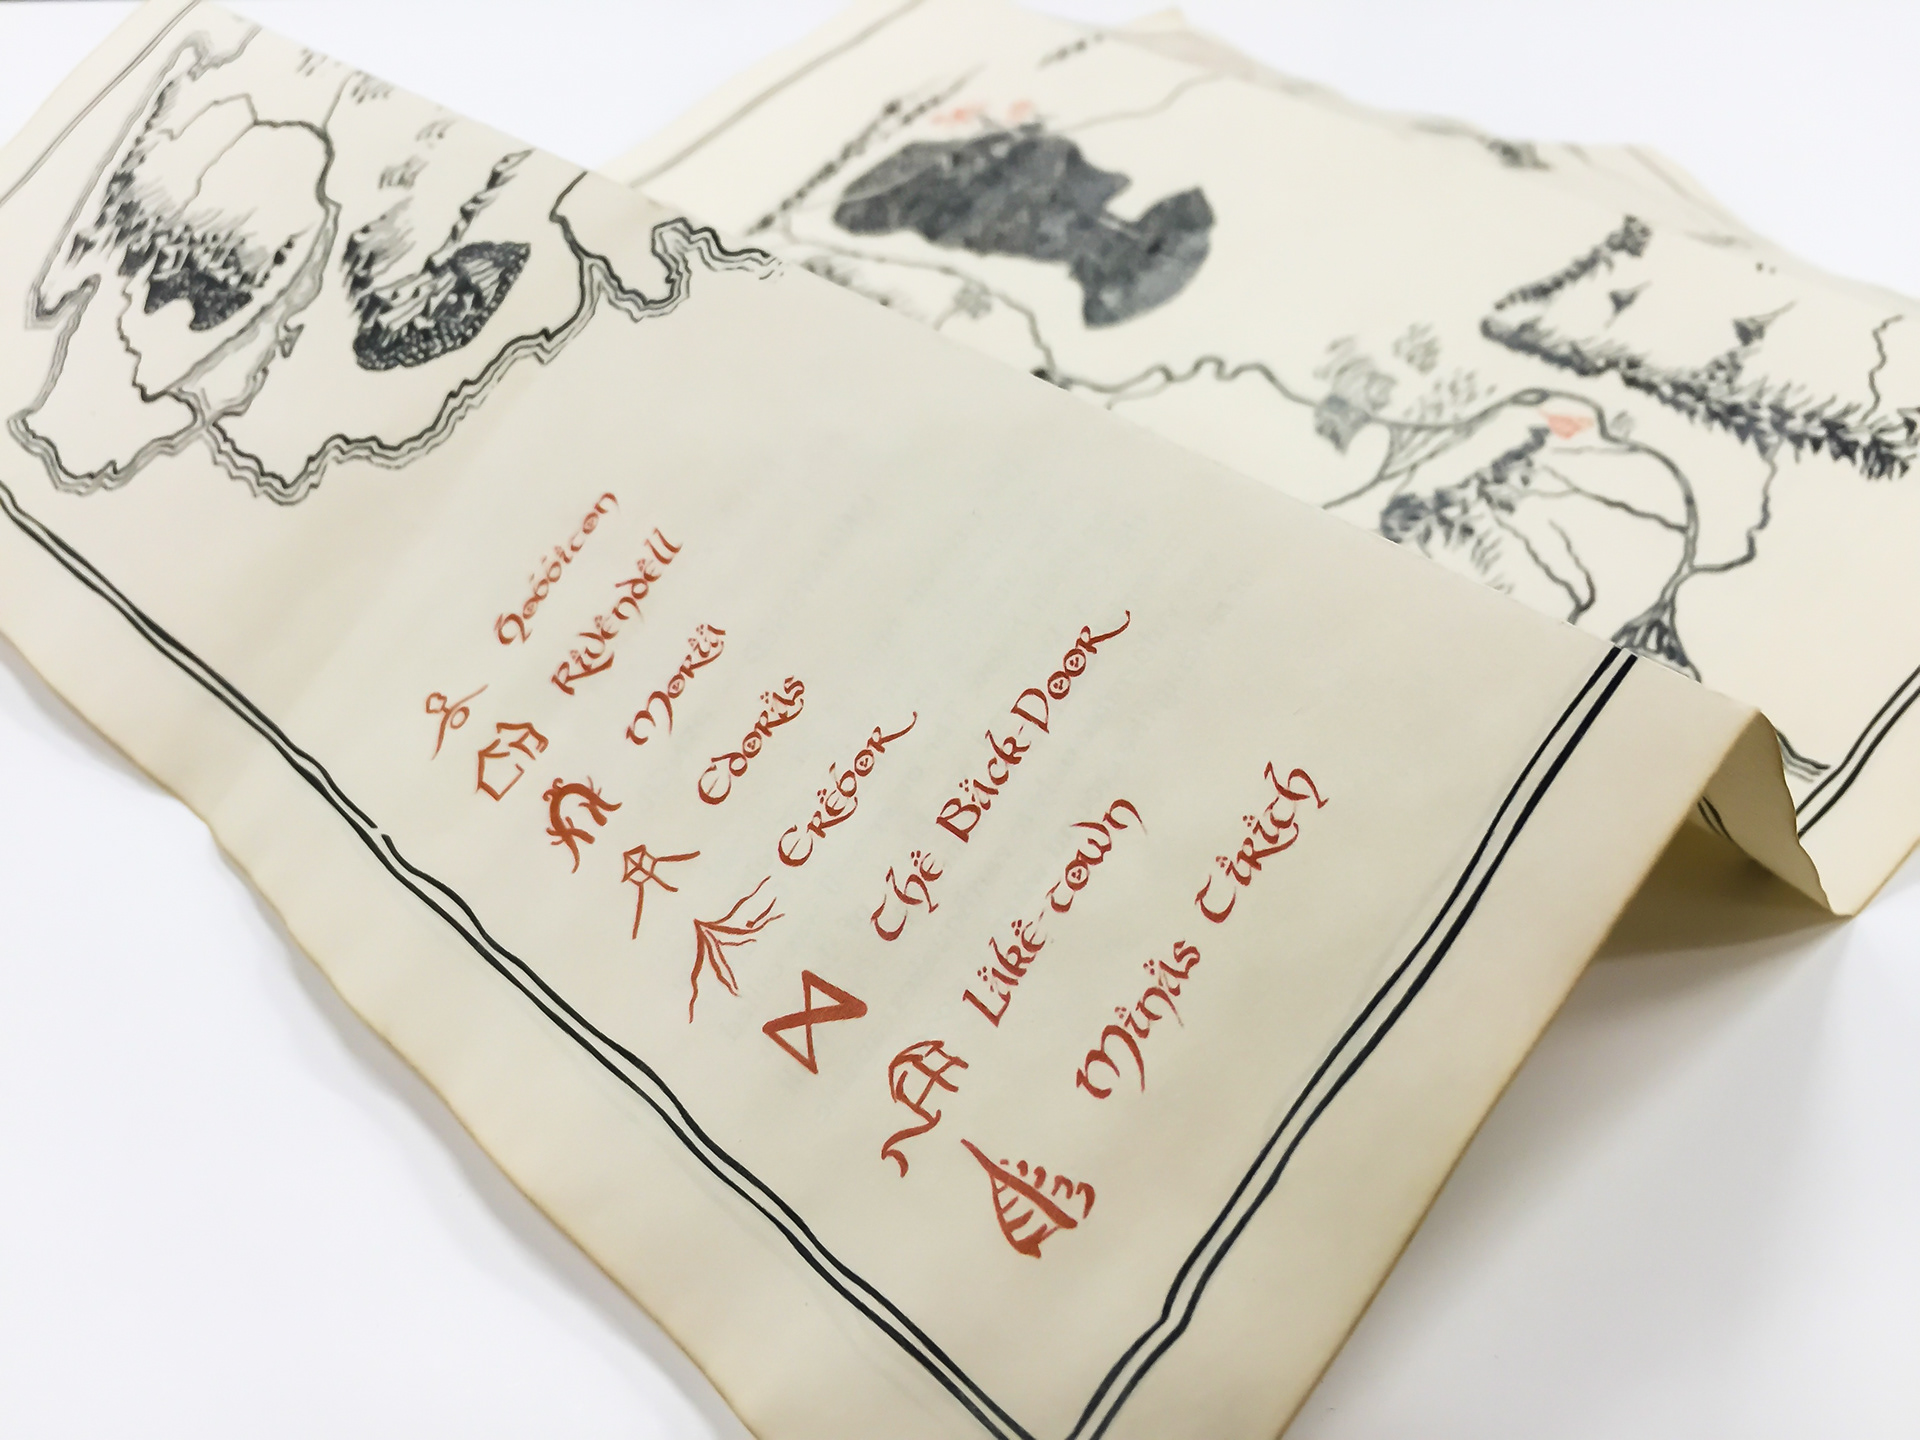 Hobbiton
Rivendell
Moria
Edoras
Erebor
The Back-Door
Lake-town
Minas Tirith